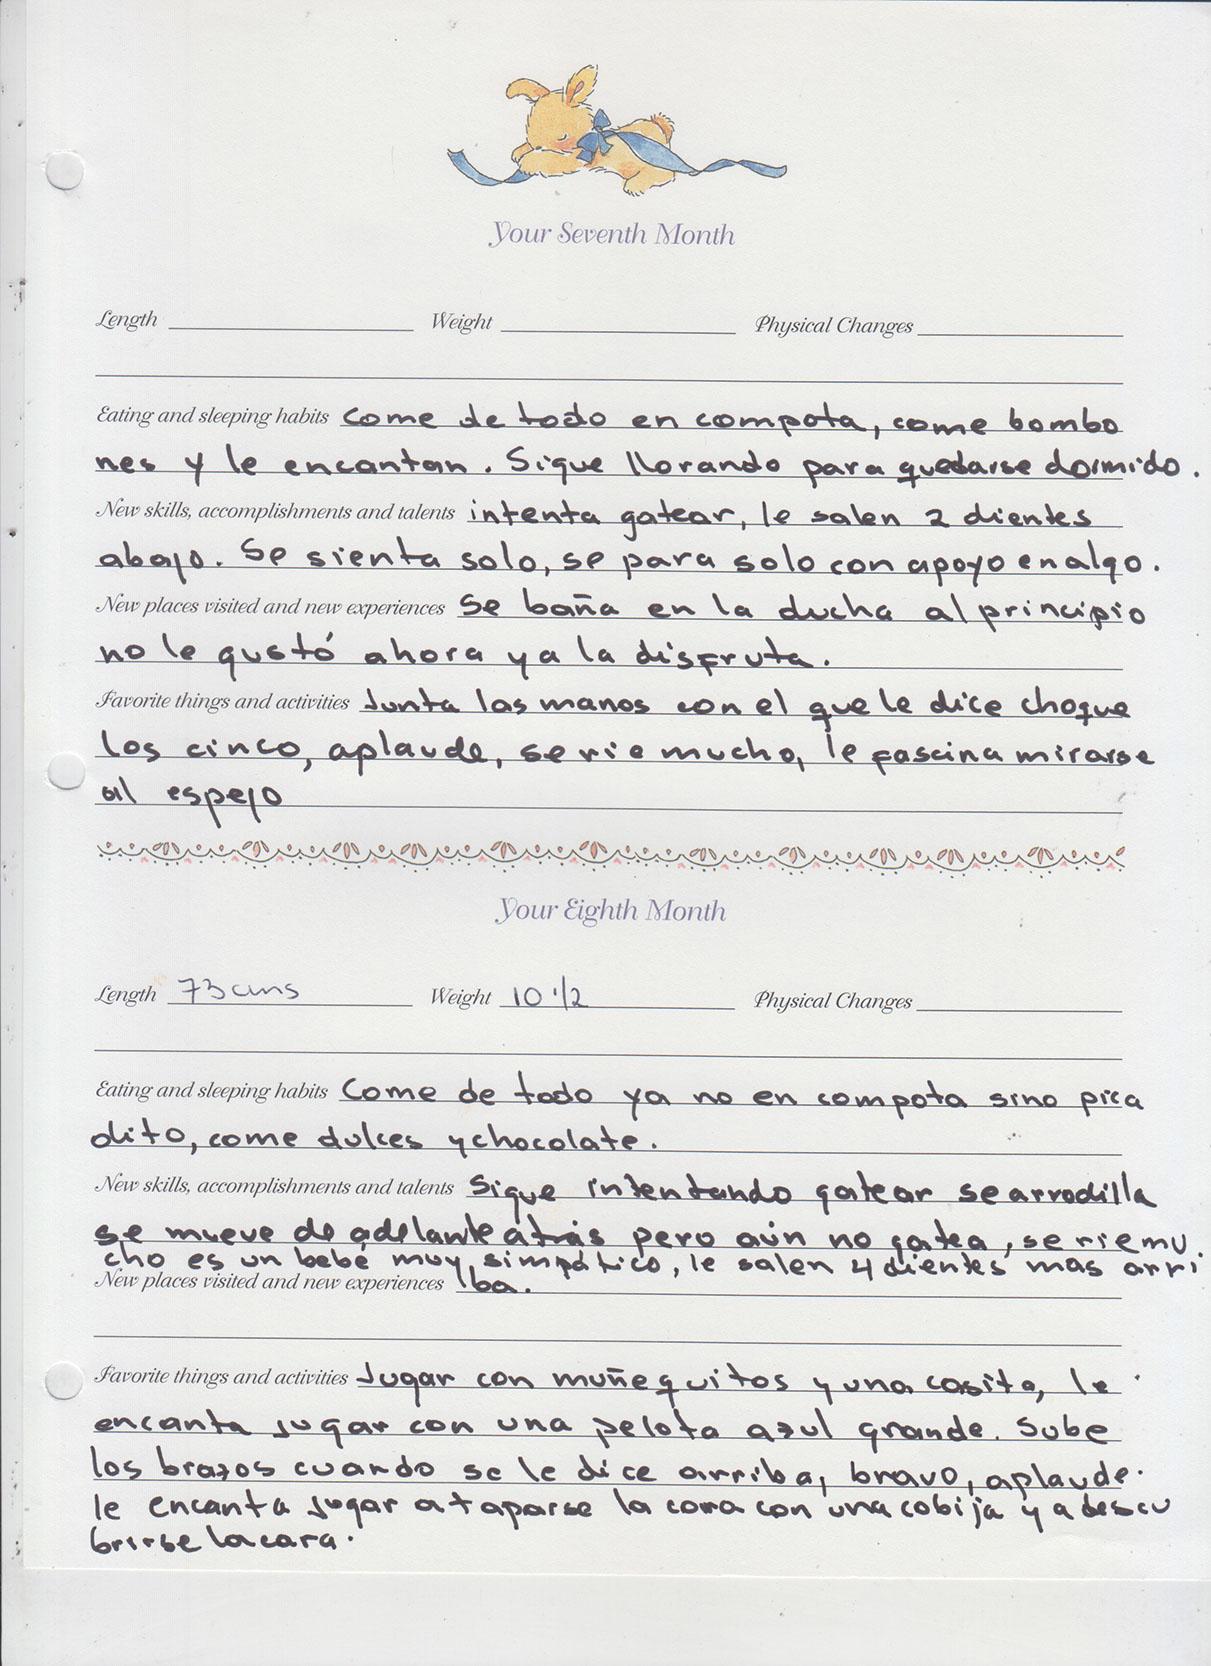 Your Seventh Month
Length Weight Physical Changes
Eating and sleeping habits Come de todo en compota, come bombo
nes y le encantan. Sigue llorando para quedarse dormido.
New skills, accomplishments and talents intenta gatear, le salen 2 dientes
abajo. Se sienta solo, se para solo con apoyo en algo.
New places visited and new experiences Se baña en la ducha al principio
no le gustó ahora ya la disfruta.
Favorite things and activities Junta las manos con el que le dice choque
los cinco, aplaude, se rie mucho, le fascina mirarse
al espejo
Your Eighth Month
Length 73 cms Weight 10 1/2 Physical Changes
Eating and sleeping habits Come de todo ya no en compota sino pica
dito, come dulces y chocolate.
New skills, accomplishments and talents Sigue intentando gatear se arrodilla
se mueve de adelante atrás pero aún no gatea, se rie mu
cho es un bebé muy simpático, le salen 4 dientes mas arri
New places visited and new experiences ba.
Favorite things and activities Jugar con muñequitos y una casita, le
encanta jugar con una pelota azul grande. Sube
los brazos cuando se le dice arriba, bravo, aplaude.
le encanta jugar a taparse la cara con una cobija y a descu
brirse la cara.